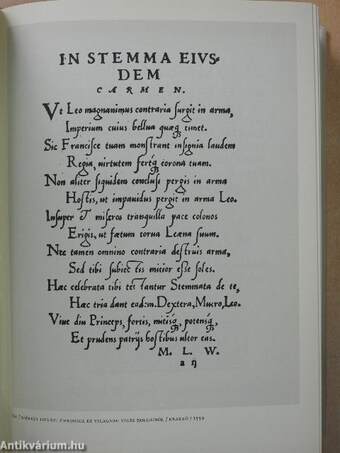 IN STEMMA EIVS-
DEM
CARMEN.
Vt Leo magnanimus contraria surgit in arma,
Imperium cuius bellua quæq; timet.
Sic Francisce tuam monstrant insignia laudem
Regia, virtutem fertq; corona tuam.
Non aliter siquidem conclusi pergis in arma
Hostis, ut impauidus pergit in arma Leo.
Insuper & miseros tranquilla pace colonos
Erigis, ut fætum torua Leæna suum.
Nec tamen omnino contraria destruis arma,
Sed tibi subiectis mitior esse soles.
Hæc celebrata tibi testantur Stemmata de te,
Hæc tria dant eadem: Dextera, Mucro, Leo.
Viue diu Princeps, fortis, mitisq;, potensq;,
Et prudens patrijs hostibus altor eas.
M. L. W.
a ij
KRAKKÓ / 1559
Antikvárium.hu